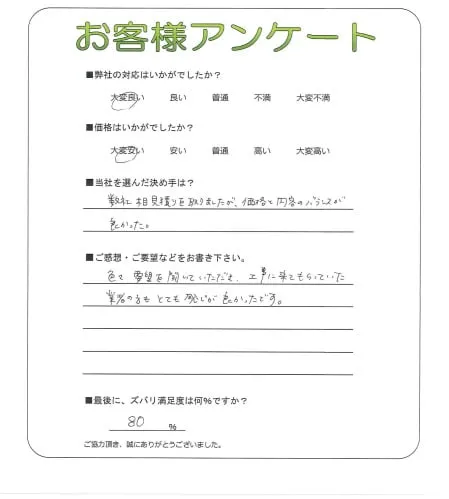 お客様アンケート
■弊社の対応はいかがでしたか？
大変良い 良い 普通 不満 大変不満
■価格はいかがでしたか？
大変安い 安い 普通 高い 大変高い
■当社を選んだ決め手は？
数社相見積りを取りましたが、価格と内容のバランスが
良かった。
■ご感想・ご要望などをお書き下さい。
色々要望を聞いていただき、工事に来てもらっていた
業者の方もとても感じが良かったです。
■最後に、ズバリ満足度は何％ですか？
80 ％
ご協力頂き、誠にありがとうございました。